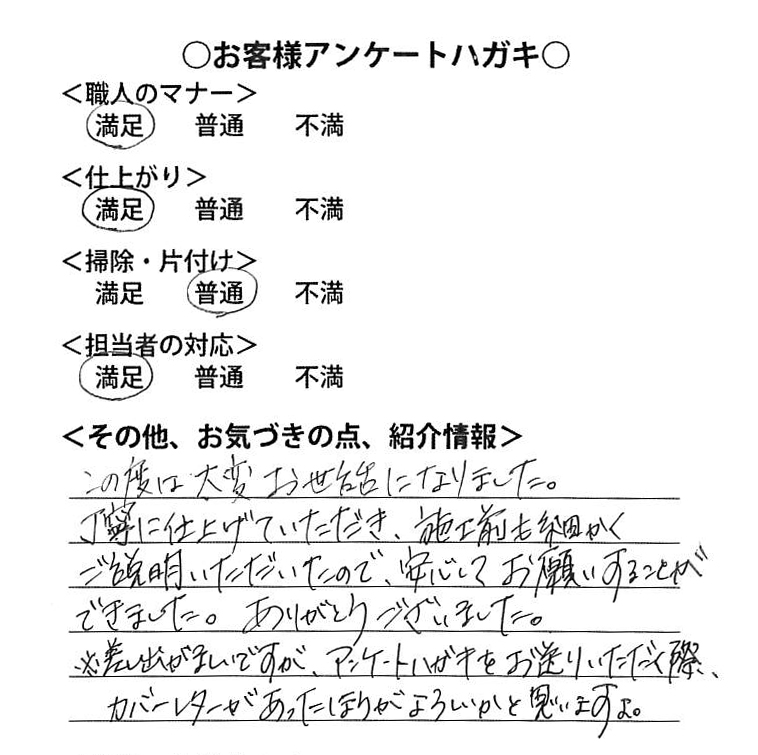 ○お客様アンケートハガキ○
＜職人のマナー＞
満足 普通 不満
＜仕上がり＞
満足 普通 不満
＜掃除・片付け＞
満足 普通 不満
＜担当者の対応＞
満足 普通 不満
＜その他、お気づきの点、紹介情報＞
この度は大変お世話になりました。
丁寧に仕上げていただき、施工前も細かく
ご説明いただいたので、安心してお願いすることが
できました。ありがとうございました。
※差し出がましいですが、アンケートハガキをお送りいただく際、
カバーレターがあったほうがよろしいかと思いますよ。